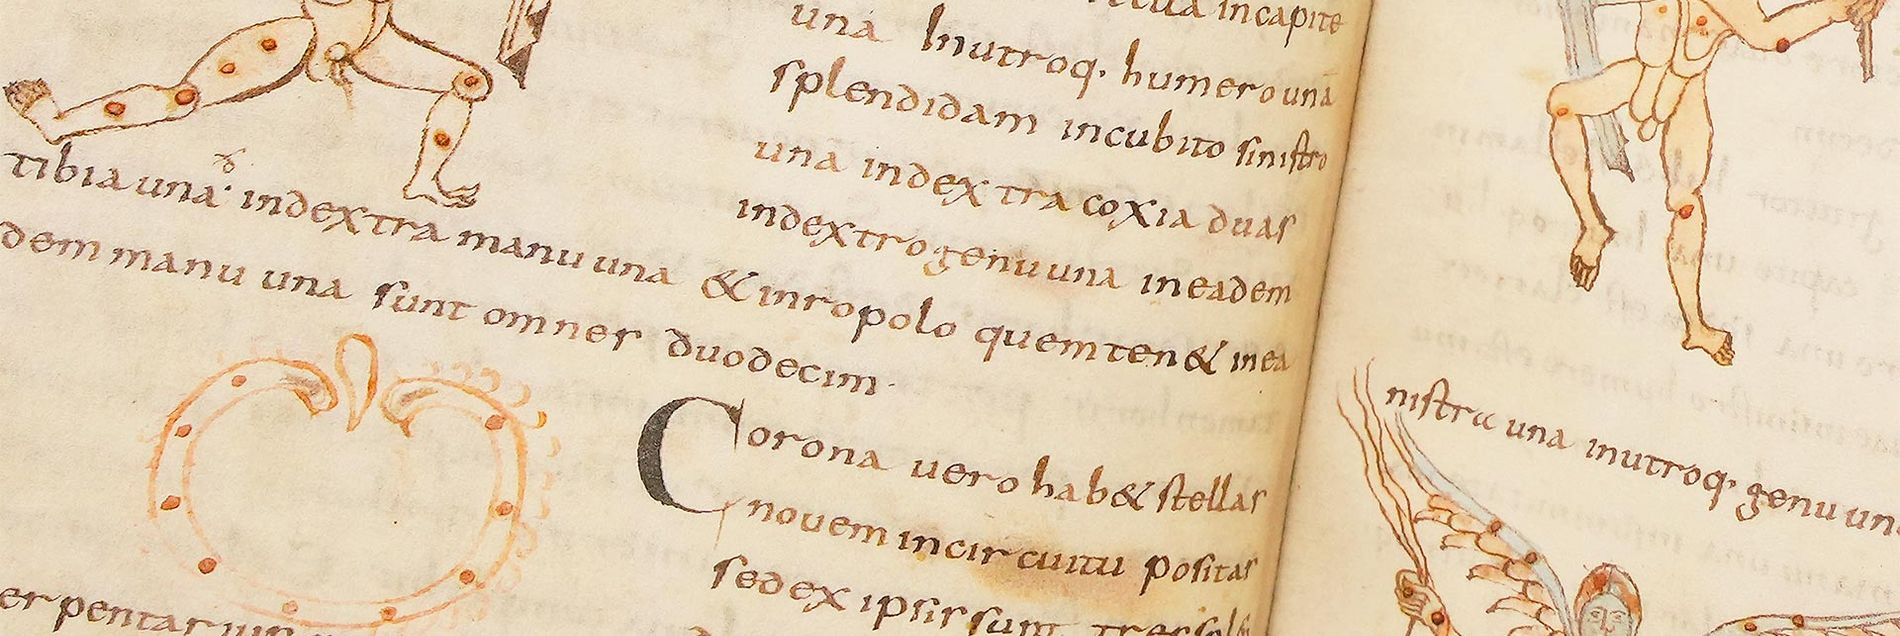 incapite
una Inutroq. humero unā
splendidam incubito sinistro
una indextra coxia duas
indextro genu una ineadem
tibia una. indextra manu una & inropolo quemten& inea
dem manu una sunt omnes duodecim.
Corona uero hab& stellas
nouem incircuitu positas
sedex ipsis sunt
nistra una inutroq. genu un